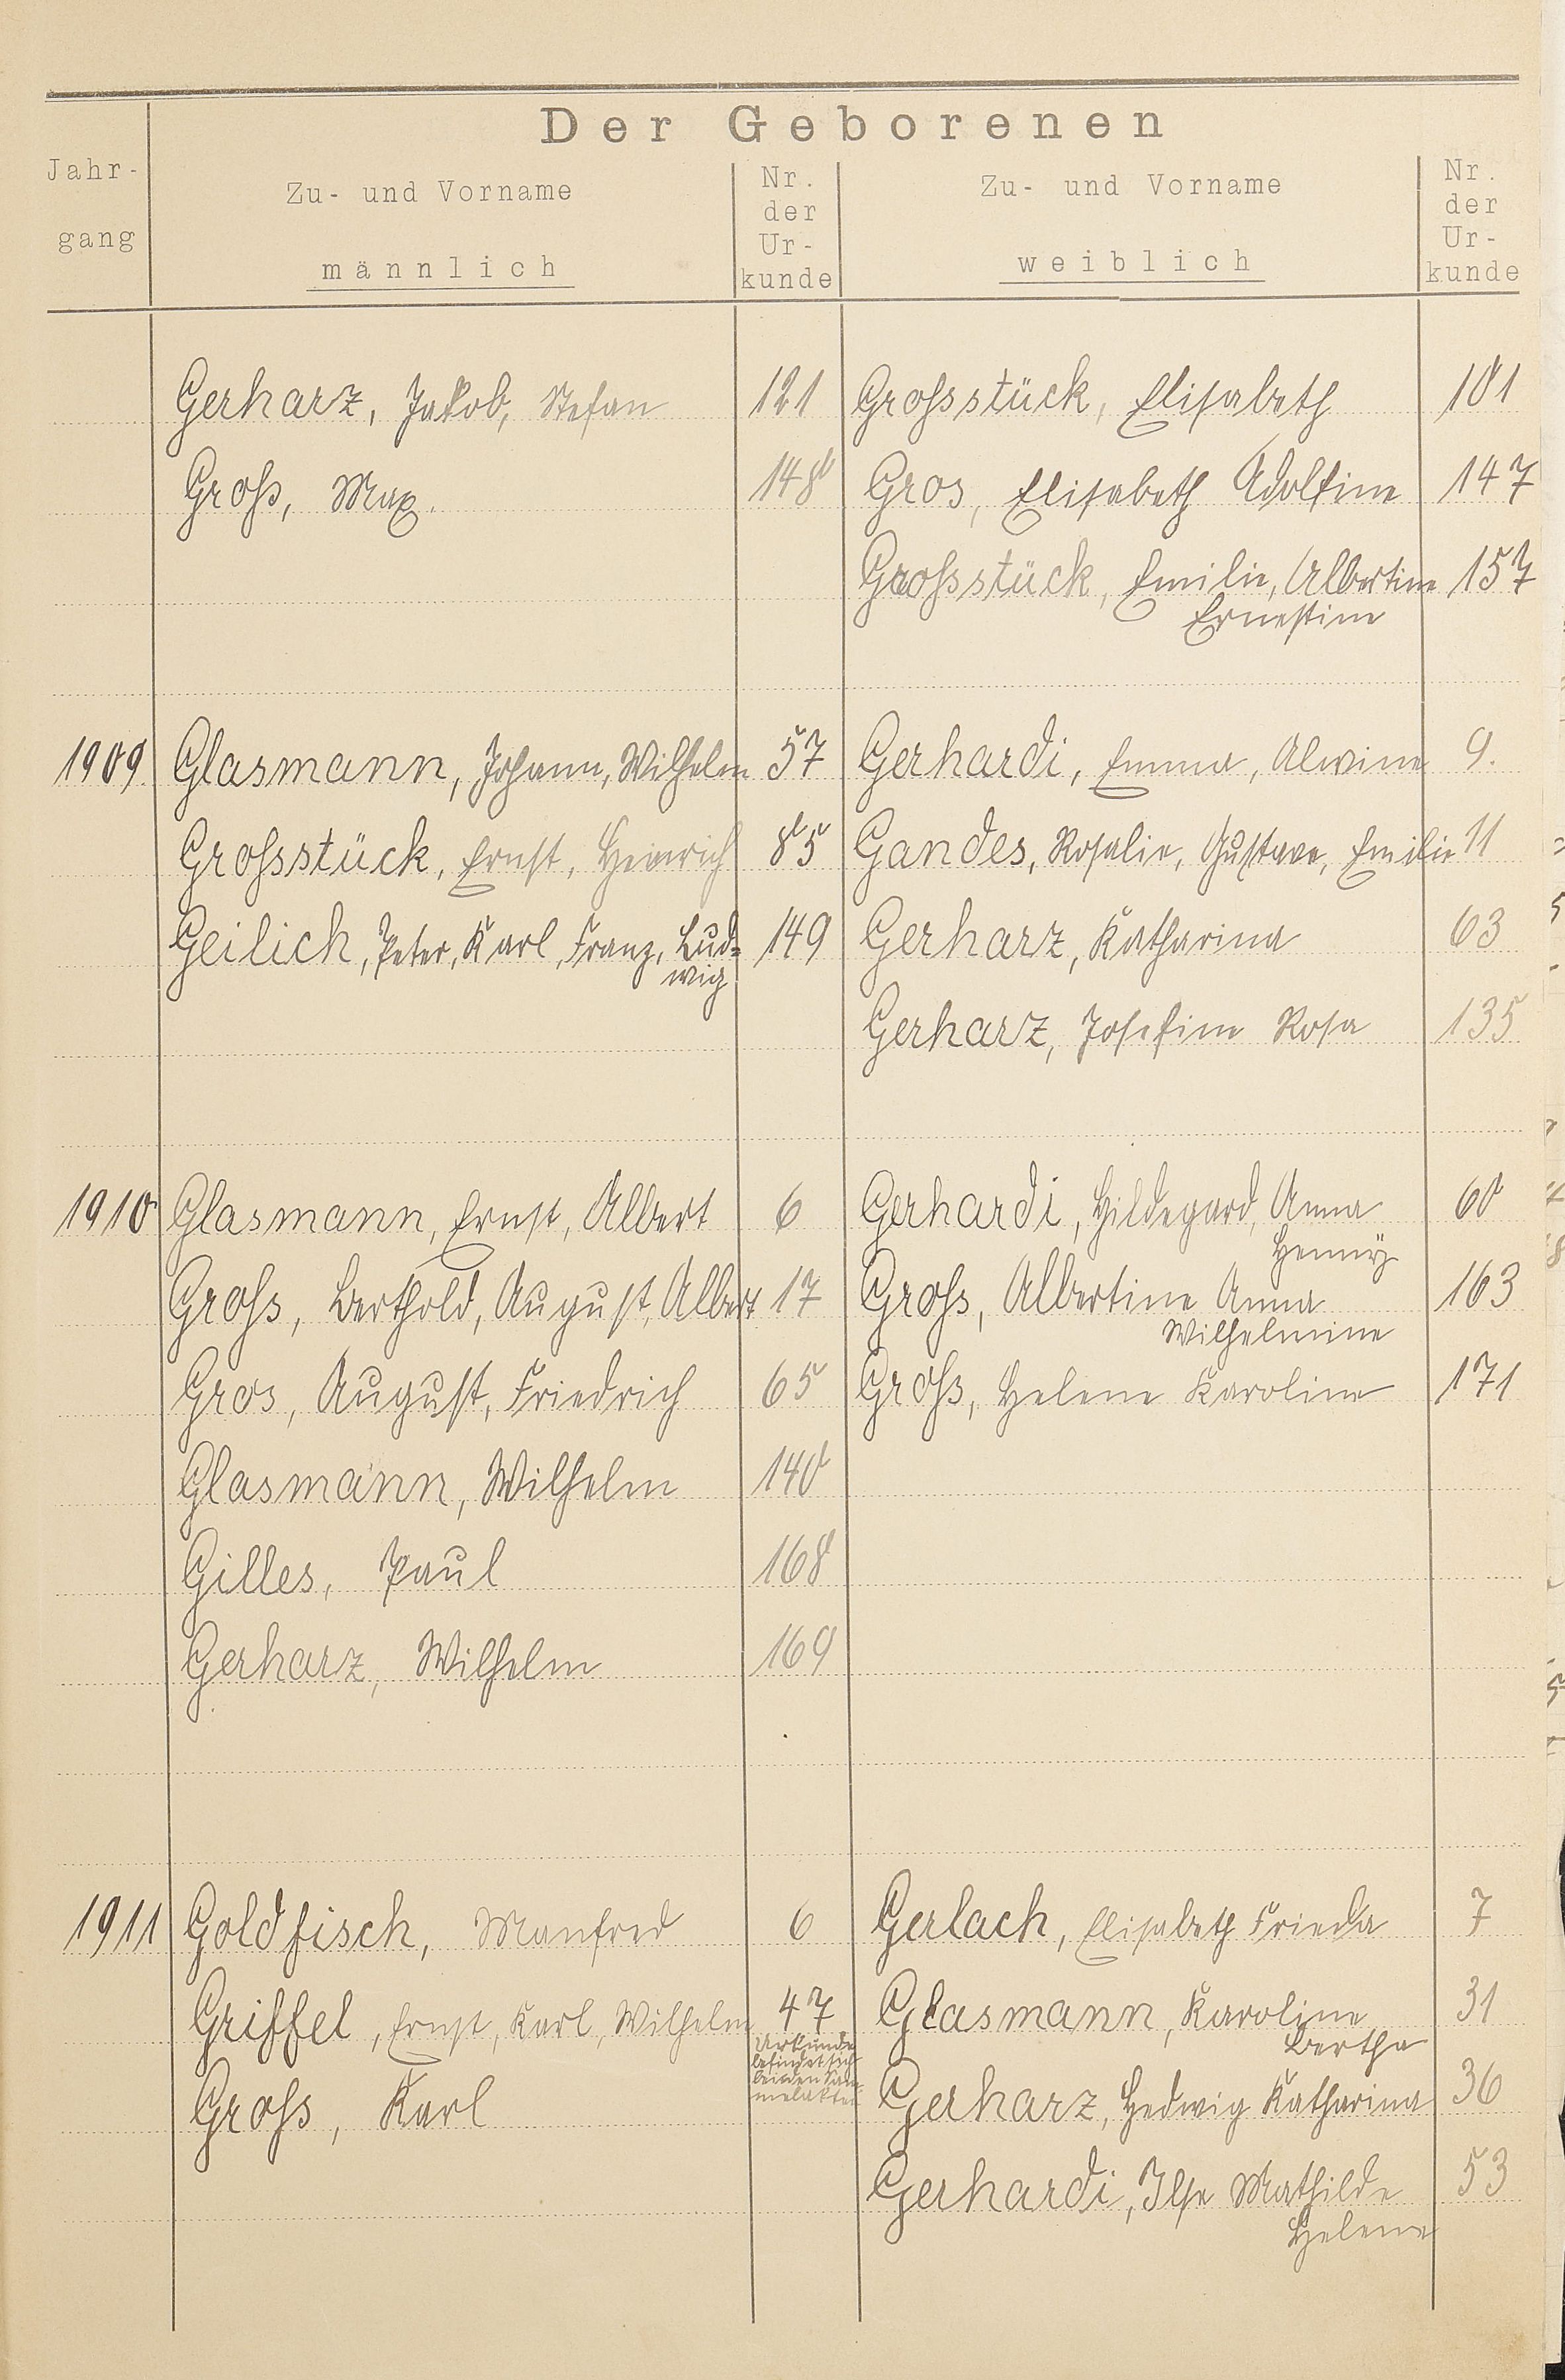 Der Geborenen
Jahr-
gang
Zu- und Vorname
männlich
Nr.
der
Ur-
kunde
Zu- und Vorname
weiblich
Nr.
der
Ur-
kunde
Gerharz, Jakob, Stefan 121 Großstück, Elisabeth 101
Groß, Max. 148 Gros, Elisabeth Adolfine 147
Großstück, Emilie, Albertine 157
Ernestine
1909 Glasmann, Johann, Wilhelm 57 Gerhardi, Emma, Alwine 9.
Großstück, Ernst, Heinrich 85 Gandes, Rosalie, Gustave, Emilie 11
Geilich, Peter, Karl, Franz, Lud= 149 Gerharz, Katharina 63
wig
Gerharz, Josefine Rosa 135
1910 Glasmann, Ernst, Albert 6 Gerhardi, Hildegard, Anna 60
Henny
Groß, Berthold, August, Albert 17 Groß, Albertine Anna 163
Wilhelmine
Gros, August, Friedrich 65 Groß, Helene Karoline 171
Glasmann, Wilhelm 140
Gilles, Paul 168
Gerharz, Wilhelm 169
1911 Goldfisch, Manfred 6 Gerlach, Elisabeth Frieda 7
Griffel, Ernst, Karl, Wilhelm 47 Glasmann, Karoline 31
Bertha
Urkunde
befindet sich
bei den Sam-
melakten
Groß, Karl Gerharz, Hedwig Katharina 36
Gerhardi, Ilse Mathilde 53
Helene